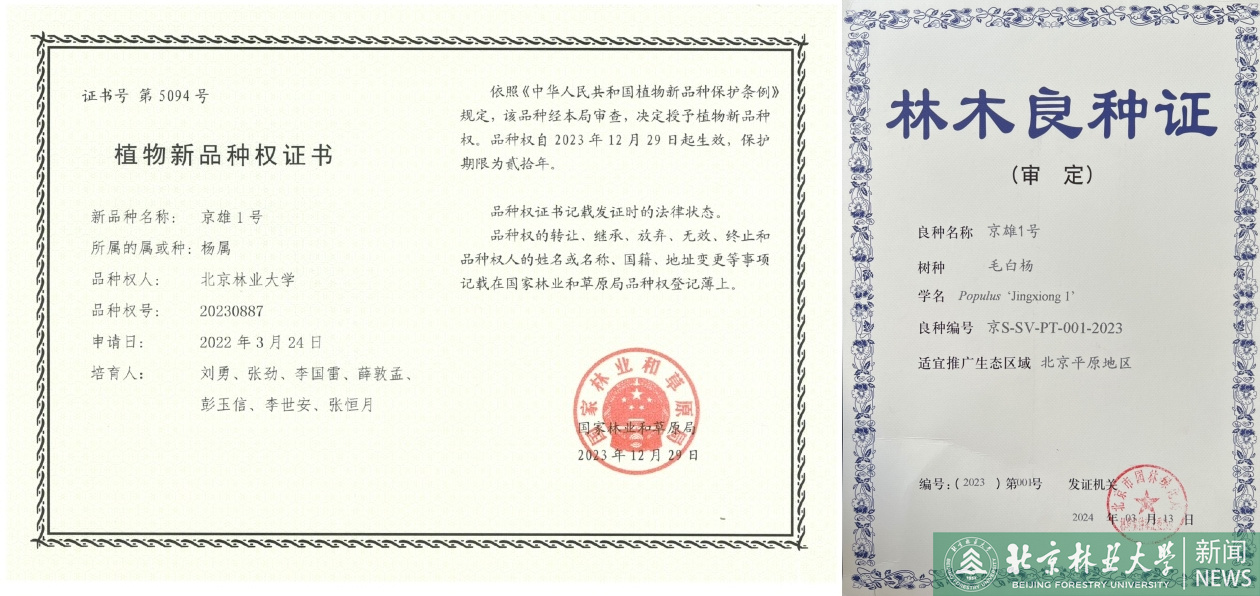 证书号 第 5094 号
植物新品种权证书
新品种名称: 京雄 1 号
所属的属或种: 杨属
品种权人: 北京林业大学
品种权号: 20230887
申请日: 2022 年 3 月 24 日
培育人: 刘勇、张劲、李国雷、薛敦孟、
彭玉信、李世安、张恒月
依照《中华人民共和国植物新品种保护条例》
规定，该品种经本局审查，决定授予植物新品种
权。品种权自 2023 年 12 月 29 日起生效，保护
期限为贰拾年。
品种权证书记载发证时的法律状态。
品种权的转让、继承、放弃、无效、终止和
品种权人的姓名或名称、国籍、地址变更等事项
记载在国家林业和草原局品种权登记薄上。
国家林业和草原局
国家林业和草原局
2023 年 12 月 29 日
林木良种证
(审 定)
良种名称 京雄1号
树种 毛白杨
学名 Populus ‘Jingxiong 1’
良种编号 京S-SV-PT-001-2023
适宜推广生态区域 北京平原地区
编号:( 2023 ) 第001号 发证机关
2024 年 03 月 13 日
北京林业大学
BEIJING FORESTRY UNIVERSITY
新闻
NEWS